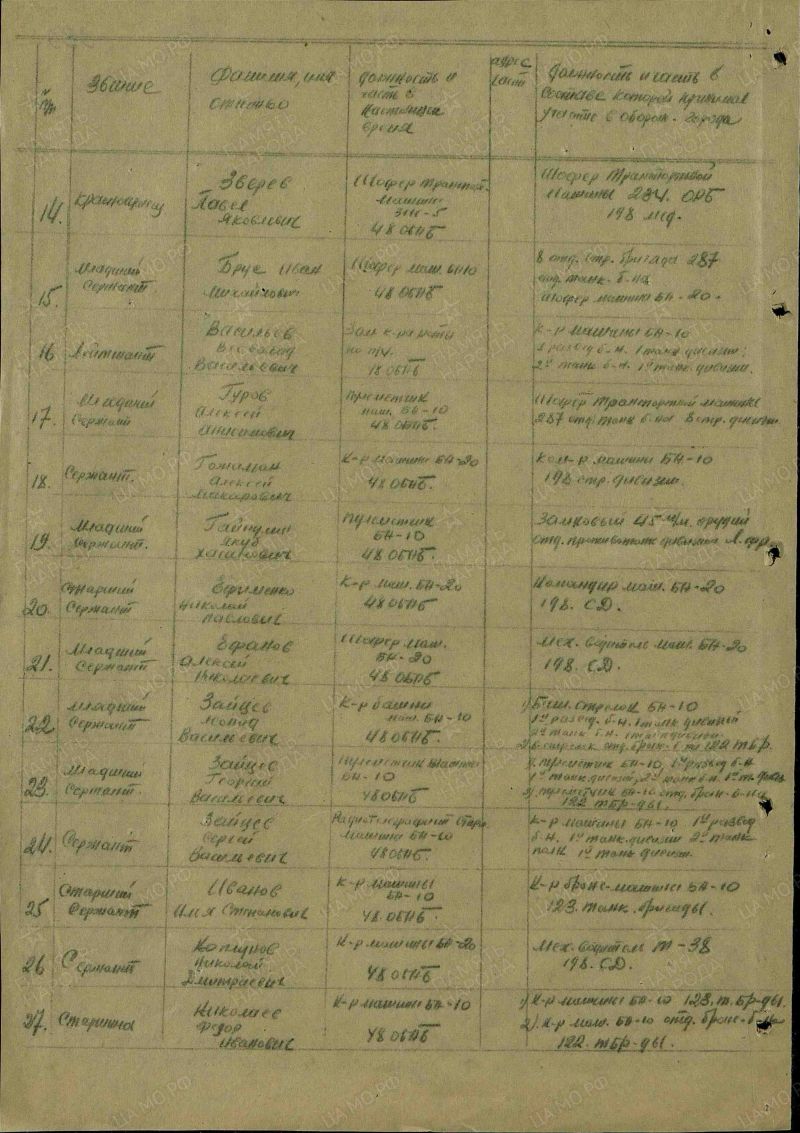 № п/п
Звание
Фамилия, имя
отчество
должность и
часть в
настоящее
время
адрес
части
должность и часть в
составе которой принимал
участие в оборон. города
14.
красноармеец
Зверев
Павел
Яковлевич
Шофер транспорт.
машины
ЗИС-5
48 ОБАБ
Шофер транспортной
машины 234. ОТБ
198 мсд.
15.
Младший
Сержант.
Брус Иван
Михайлович
Шофер маш. БА10
48 ОБАБ
8 отд. стр. бригада 287
отд. танк. б-на
Шофер машины БА-20.
16
Лейтенант
Васильев
Всеволод
Васильевич
Зам к-ра роты
по т/ч.
48 ОБАБ
К-р машины БА-10
1 развед. б-н. 1 танк дивизии;
2й танк. б-н. 1й танк. дивизии.
17.
Младший
Сержант
Гуров
Алексей
Анисимович
Пулеметчик
маш. БА-10
48 ОБАБ.
Шофер транспортной машины
287 отд. танк б-на 8 стр. дивизии.
18.
Сержант.
Алексей
Макарович
К-р машины БА-20
48 ОБАБ.
Ком-р машины БА-10
198 стр. дивизии.
19.
Младший
Сержант.
Гайнулин
Якуб
Хасанович
Пулеметчик
БА-10
48 ОБАБ.
Замковый 45 м/м. орудий
отд. противотанк дивизион Л. фр.
20.
Старший
Сержант
Ефименко
Николай
Павлович
К-р маш. БА-20
48 ОБАБ
Командир маш. БА-20
198. СД.
21.
Младший
Сержант
Ефанов
Алексей
Николаевич
Шофер маш.
БА-20
48 ОБАБ
Мех. водитель маш. БА-20
198. СД.
22
Младший
Сержант
Зайцев
Леонид
Васильевич
К-р башни
маш. БА-10
48 ОБАБ.
1) Баш. стрелок БА-10
1й развед. б-н. 1 танк дивизии
2й танк б-н. 1 танк дивизии.
2) Б. стрелок отд. брон. б-на 122 тбр.
23.
Младший
Сержант.
Зайцев
Георгий
Васильевич
Пулеметчик машины
БА-10
48 ОБАБ
1) пулеметчик БА-10, 1й развед б-н
1й танк. дивизии, 2й танк б-н. 1й т. дивиз.
2) пулеметчик БА-10 отд. брон-б-на
122 тбр-ды.
24.
Сержант
Зайцев
Сергей
Васильевич
Радиотелеграфист старш.
машины БА-10
48 ОБАБ.
К-р машины БА-10 1й развед
б-н. 1й танк. дивизии 2й танк
полк 1й танк дивизии.
25
Старший
Сержант
Иванов
Илья Степанович
К-р машины
БА-10
48. ОБАБ.
К-р броне-машины БА-10
123. танк. бригады.
26
Сержант
Николай
Дмитриевич
К-р машины БА-20
48 ОБАБ
Мех. водитель Т-38
198. СД.
27.
Старшина
Николаев
Федор
Иванович
К-р машины БА-10
48 ОБАБ
1) К-р машины БА-10 123. т. бр-ды.
2). К-р маш. БА-10 отд. броне-б-на
122. тбр-ды.